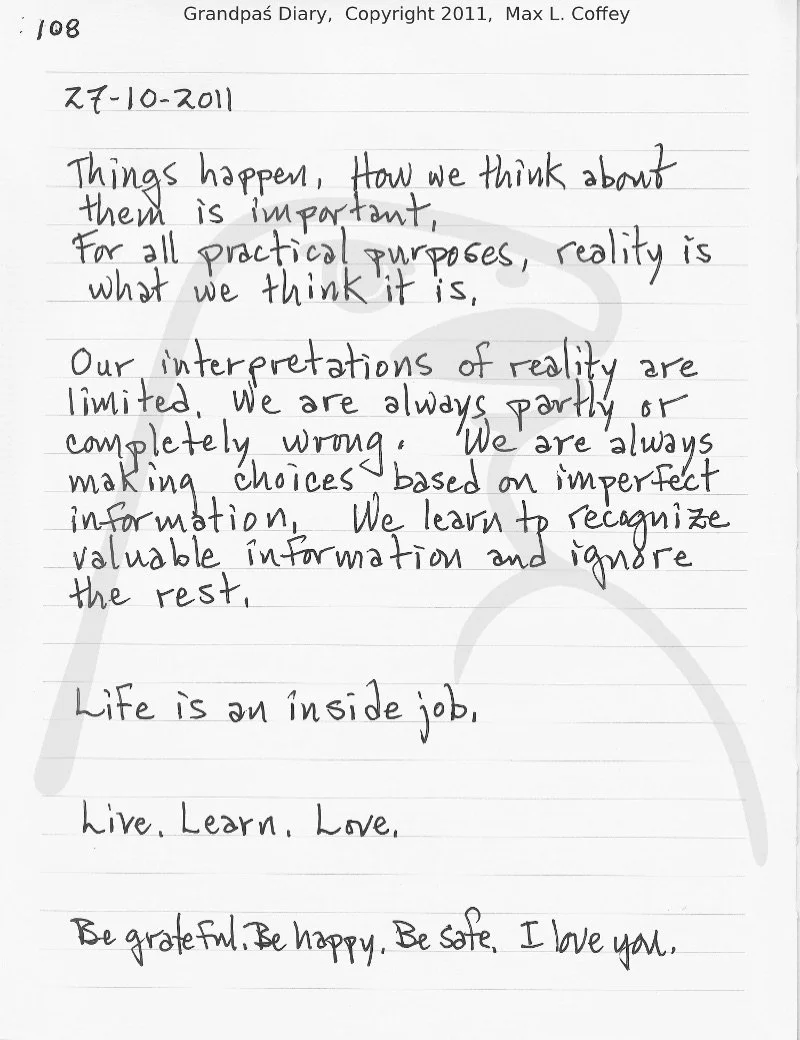 Grandpaś Diary, Copyright 2011, Max L. Coffey
108
27-10-2011
Things happen. How we think about
them is important.
For all practical purposes, reality is
what we think it is.
Our interpretations of reality are
limited. We are always partly or
completely wrong. We are always
making choices based on imperfect
information. We learn to recognize
valuable information and ignore
the rest.
Life is an inside job.
Live. Learn. Love.
Be grateful. Be happy. Be safe. I love you.